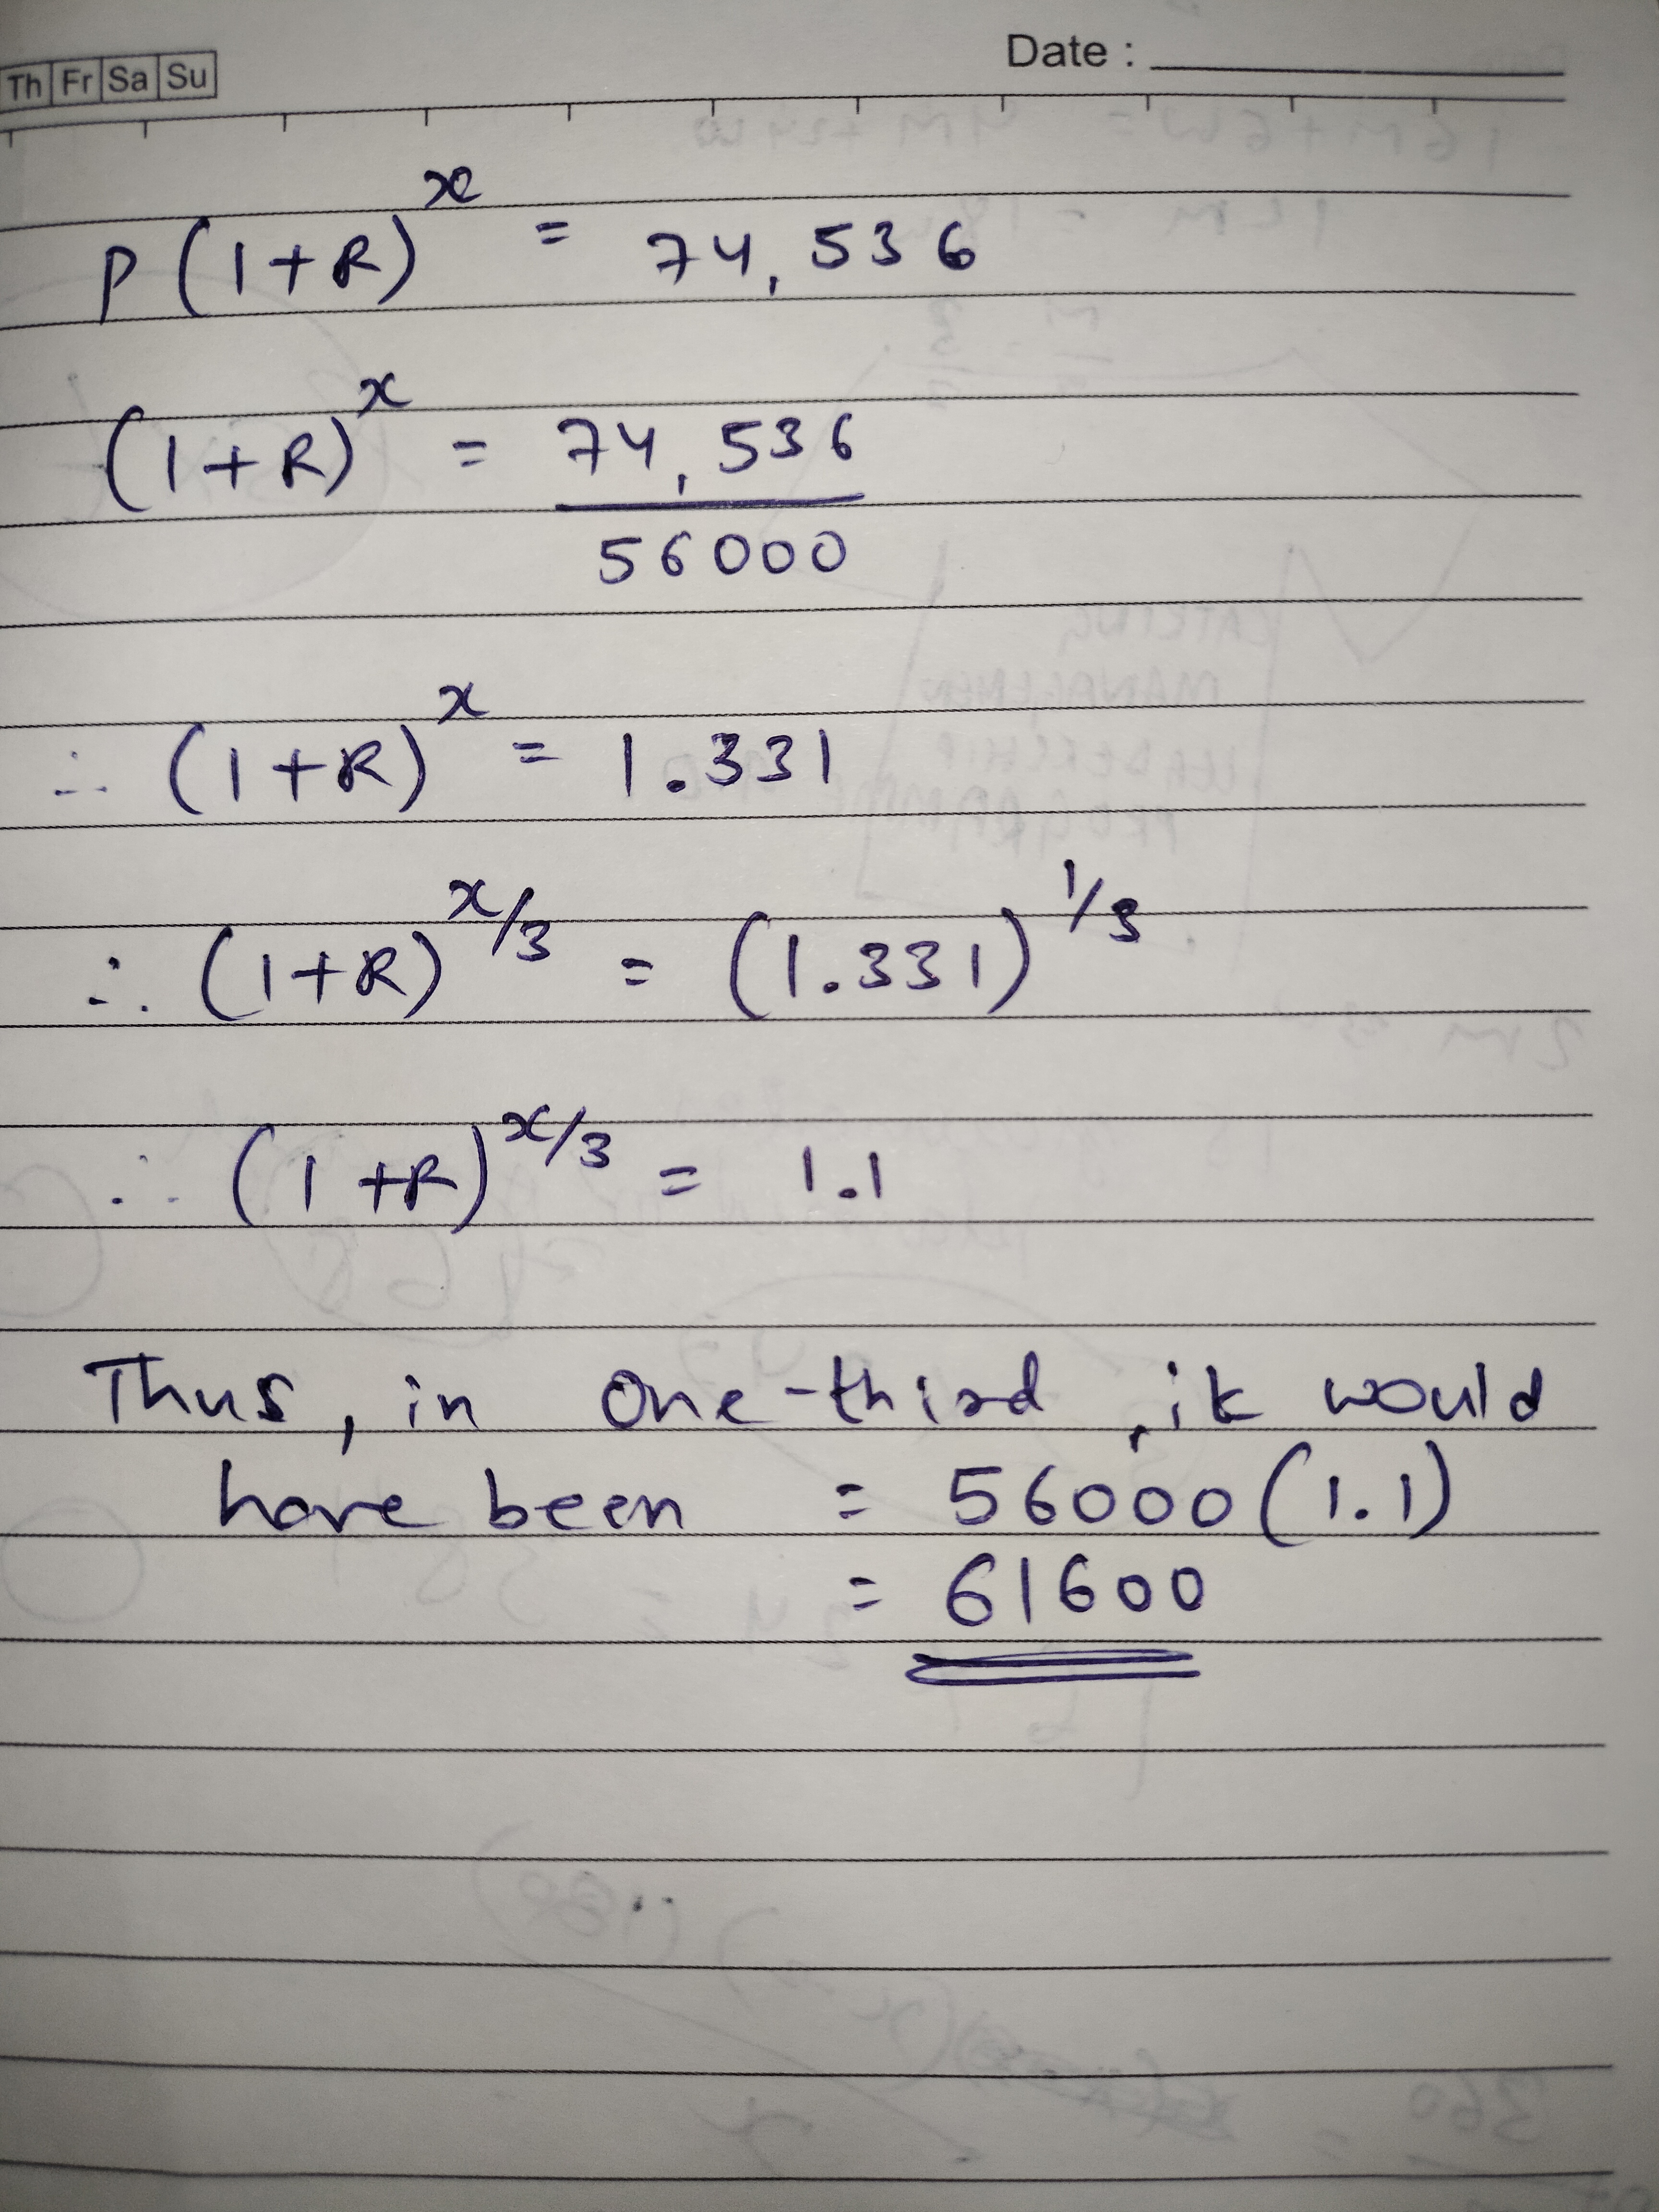 Date :
Th Fr Sa Su
P(1+R)^x = 74,536
(1+R)^x = 74,536
56000
∴ (1+R)^x = 1.331
∴ (1+R)^x/3 = (1.331)^1/3
∴ (1+R)^x/3 = 1.1
Thus, in one-third, it would
have been = 56000(1.1)
= 61600